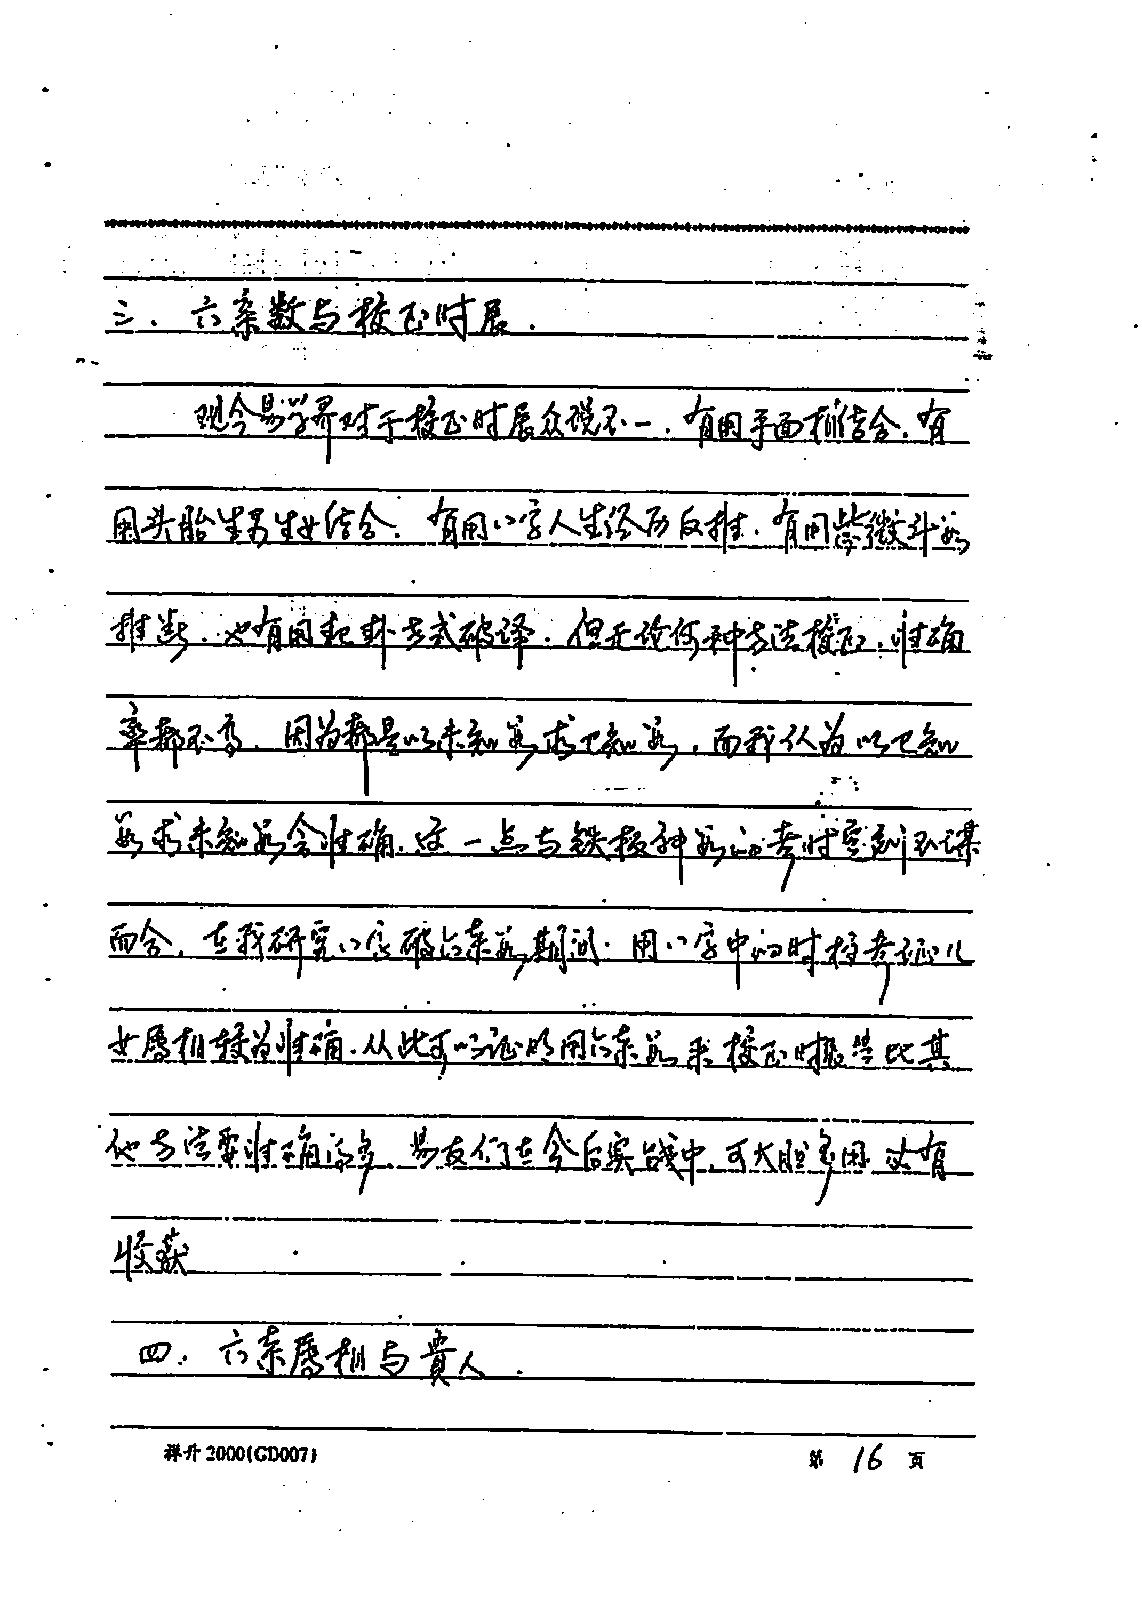 三、六亲数与校正时辰.
现今易学界对于校正时辰众说不一.有用平面相结合.有
用头胎生男生女结合.有用八字人生经历反推.有用紫微斗数
推断.也有用起卦方式破译.但无论何种方法校正.准确
率都不高.因为都是以未知数求已知数,而我认为以已知
数求未知数会准确.这一点与铁板神数的考时定刻不谋
而合.在我研究八字破六亲数期间.用八字中的时柱考证儿
女属相较为准确.从此可以证明用六亲数来校正时辰当比其
他方法要准确的多.易友们在今后实战中,可大胆多用 必有
收获
四.六亲属相与贵人.
祥升2000(GD007)
第 16 页